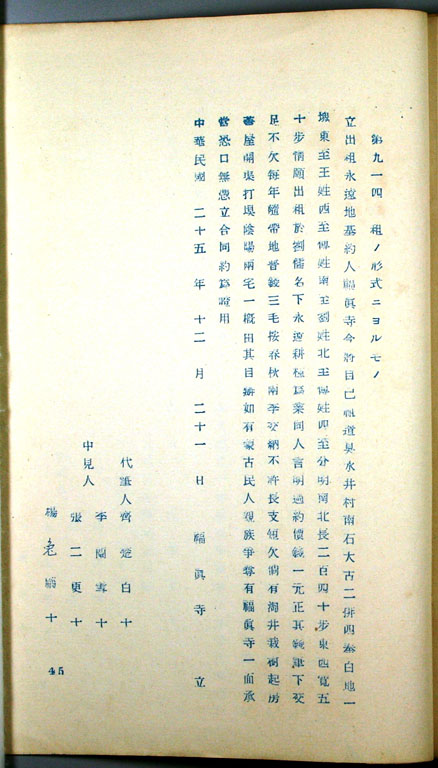 第九一四 租ノ形式ニヨルモノ
立出租永遠地基約人福眞寺今將自己祖道具水井村南石大古二併四泰白地一
塊東至王姓西至傳姓南至劉姓北至傳姓四至分明南北長二百四十步東西寬五
十步情願出租於劉儒名下永遠耕種爲業同人言明過約價錢一元正其錢筆下交
足不欠每年隨帶地普錢三毛按春秋兩季交納不許長支短欠開有淘井栽樹起房
蓋屋開坟打塽陰陽兩宅一槪由其自辦如有蒙古民人親族爭奪有福眞寺一面承
當恐口無憑立合同約爲證用
中華民國 二十五年 十二月 二十一日 福眞寺 立
代筆人 齊楚白 十
李蘭雲 十
中見人 張二更 十
楊 十
45